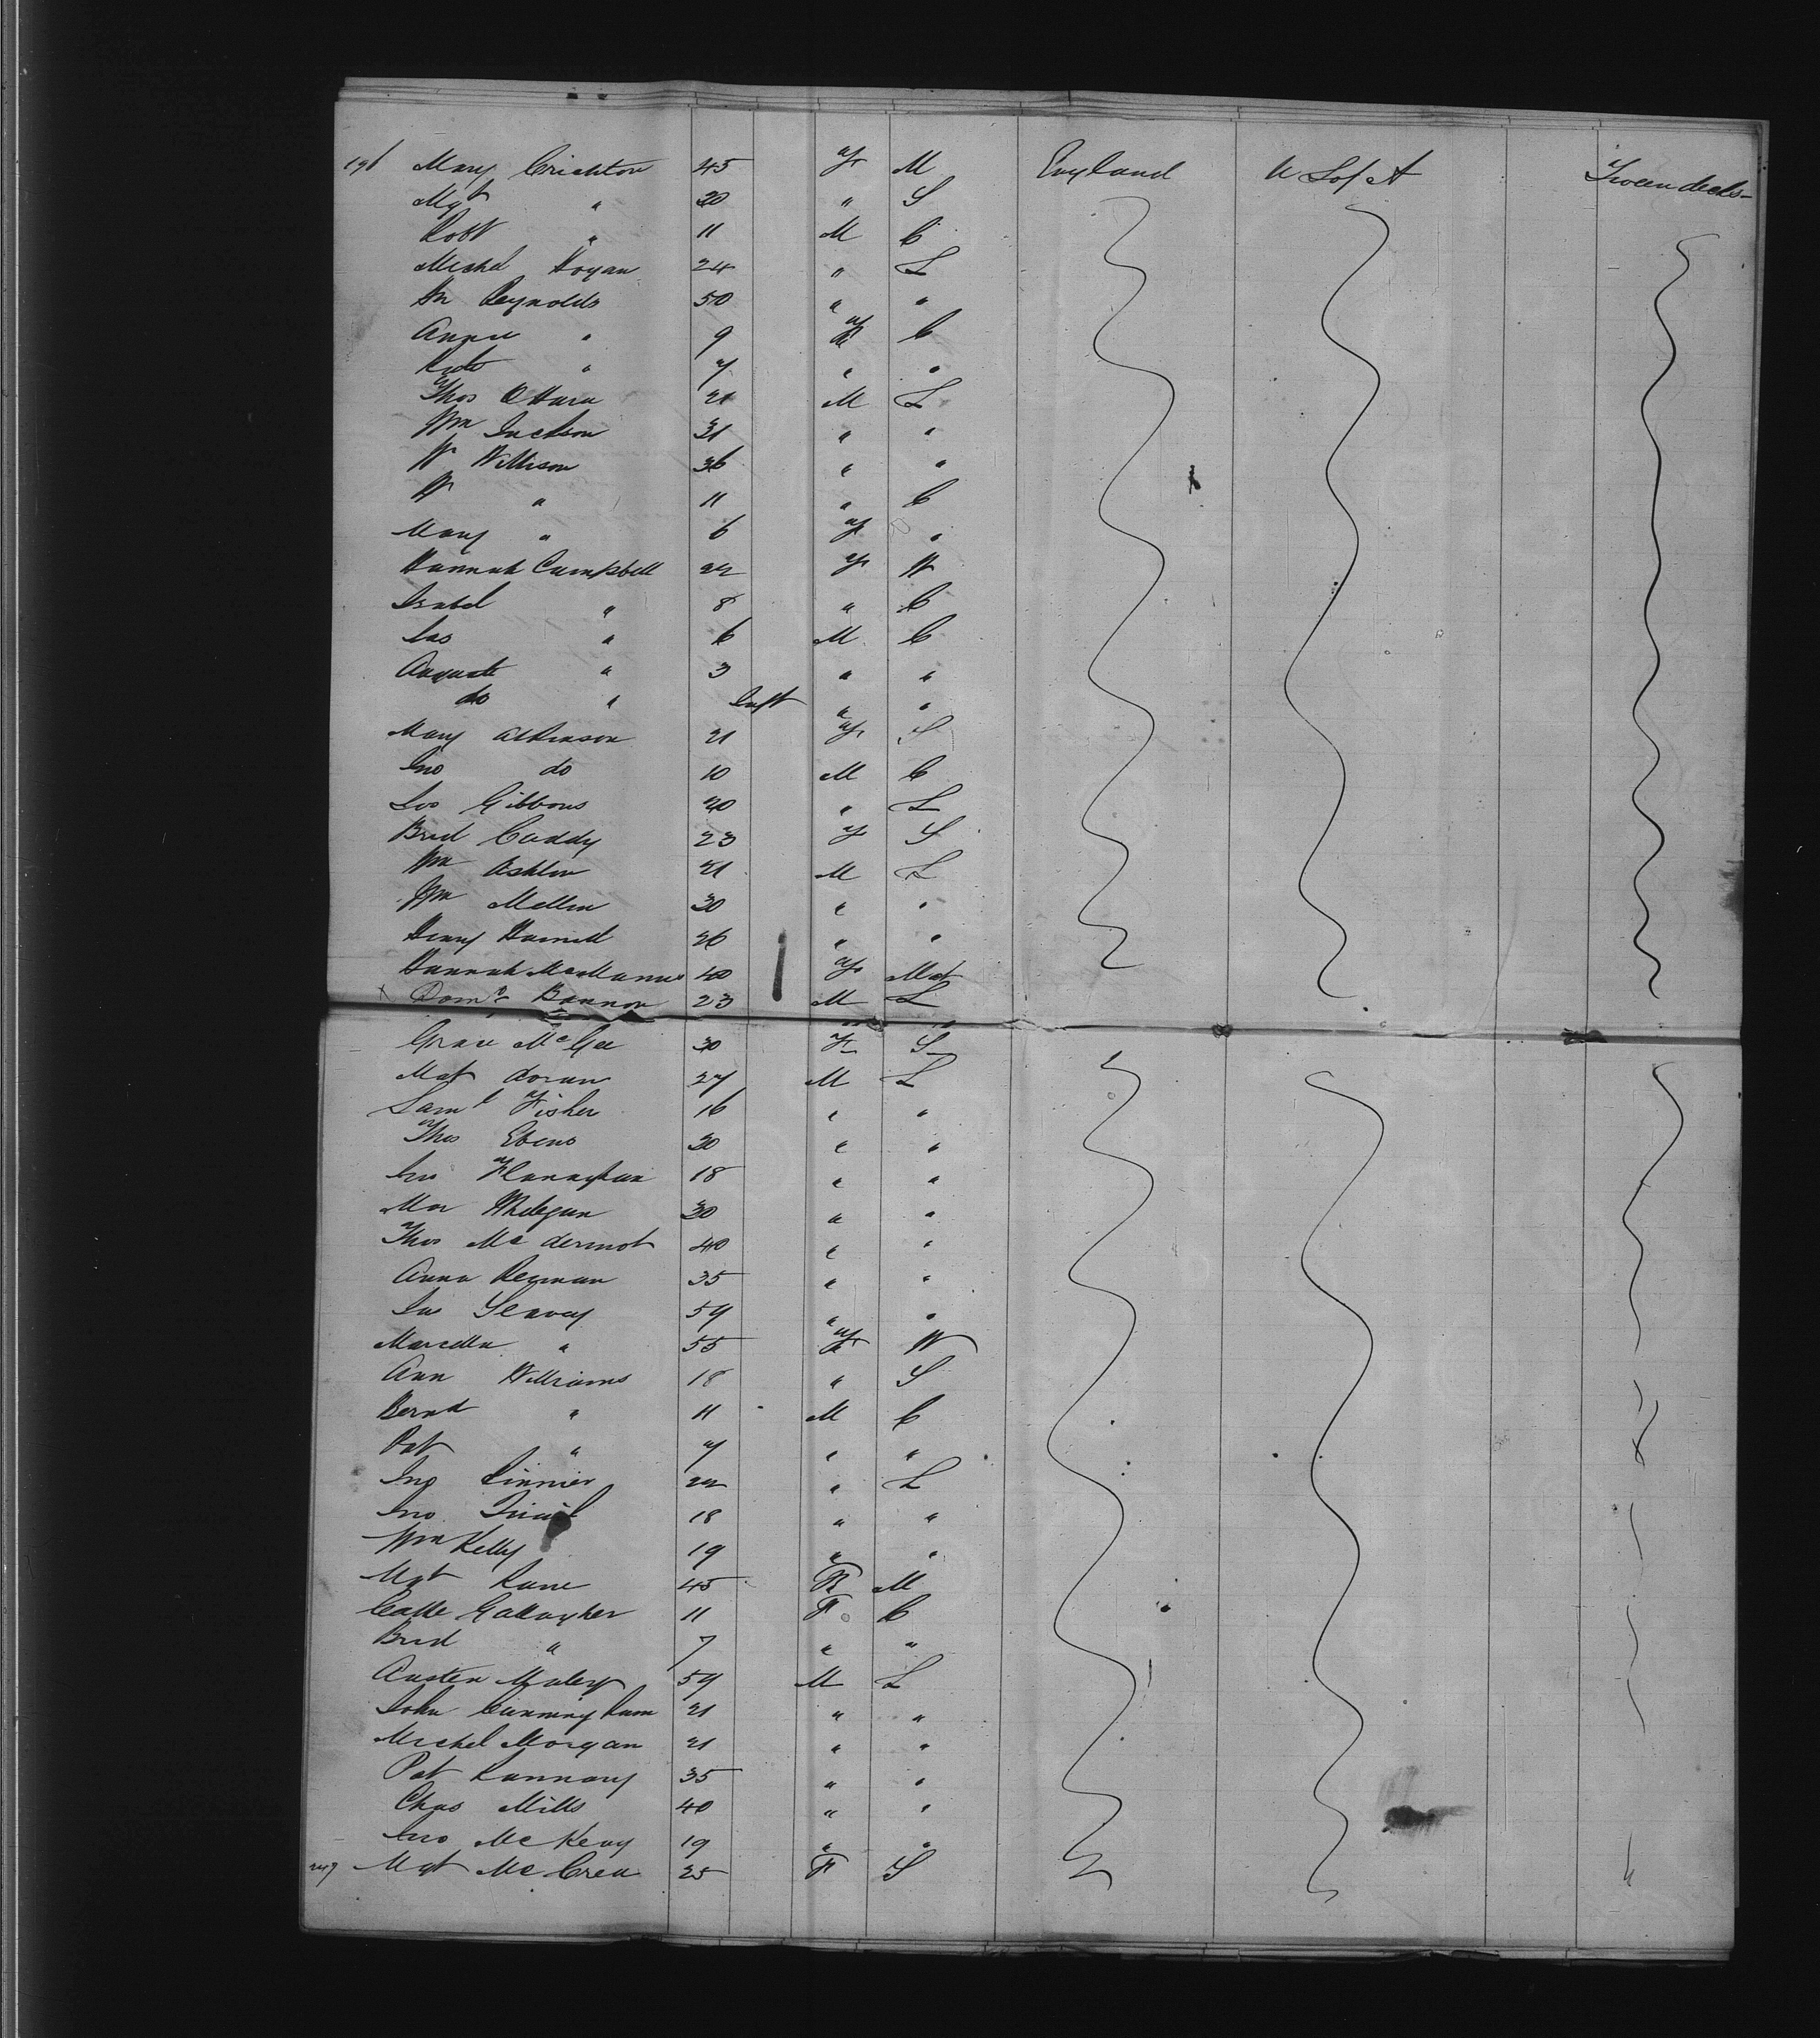 196 Mary Crichton 45 F M England U S of A Tween decks
Mgt " 20 " S
Robt " 11 M C
Michel Hogan 24 " L
Wm Reynolds 50 " "
Annie " 9 F C
Kate " 7 " "
Thos O Hara 21 M L
Wm Jackson 31 " "
W Willison 36 " "
W " 11 " C
Mary " 6 F "
Hannah Campbell 22 F W
Isabel " 8 " C
Jas " 6 M C
August " 3 " "
do " Inft " "
Mary Atkinson 21 F S
Jno do 10 M C
Jos Gibbons 20 " L
Brid Caddy 23 F S
Wm Ashton 21 M L
Wm Mellin 30 " "
Henry 26 " "
Hannah McManus 40 F Mat
x Domk Bannon 23 M L
Grace McGee 30 F S
Mat Doran 27 M L
Saml Fisher 16 " "
Thos Ebens 20 " "
Jno Flanaghan 18 " "
30 " "
Thos McDermot 40 " "
Anna 35 " "
Jas 59 " "
Marcella " 55 F W
Ann Williams 18 " S
Bernd " 11 M C
Pat " 7 " "
Jno 22 " L
Jno 18 " "
Wm Kelly 19 " "
Mgt Kane 45 F M
Cathe Gallagher 11 F C
Brid " 7 " "
Austen Maley 59 M L
John Cunningham 21 " "
Michel Morgan 21 " "
Pat Kannary 35 " "
Chas Mills 40 " "
Jno McKeny 19 " "
247 Mgt McCrea 25 F S